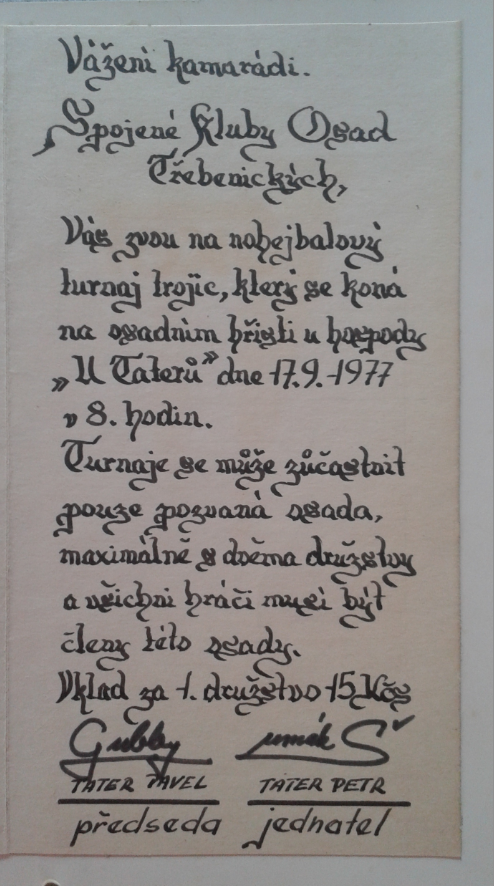 Vážení kamarádi.
Spojené Kluby Osad
Třebenických,
Vás zvou na nohejbalový
turnaj trojic, který se koná
na osadním hřišti u hospody
„U Taterů” dne 17.9.-1977
v 8. hodin.
Turnaje se může zúčastnit
pouze pozvaná osada,
maximálně s dvěma družstvy
a všichni hráči musí být
členy této osady.
Vklad za 1. družstvo 15 Kčs
TATER PAVEL TATER PETR
předseda jednatel